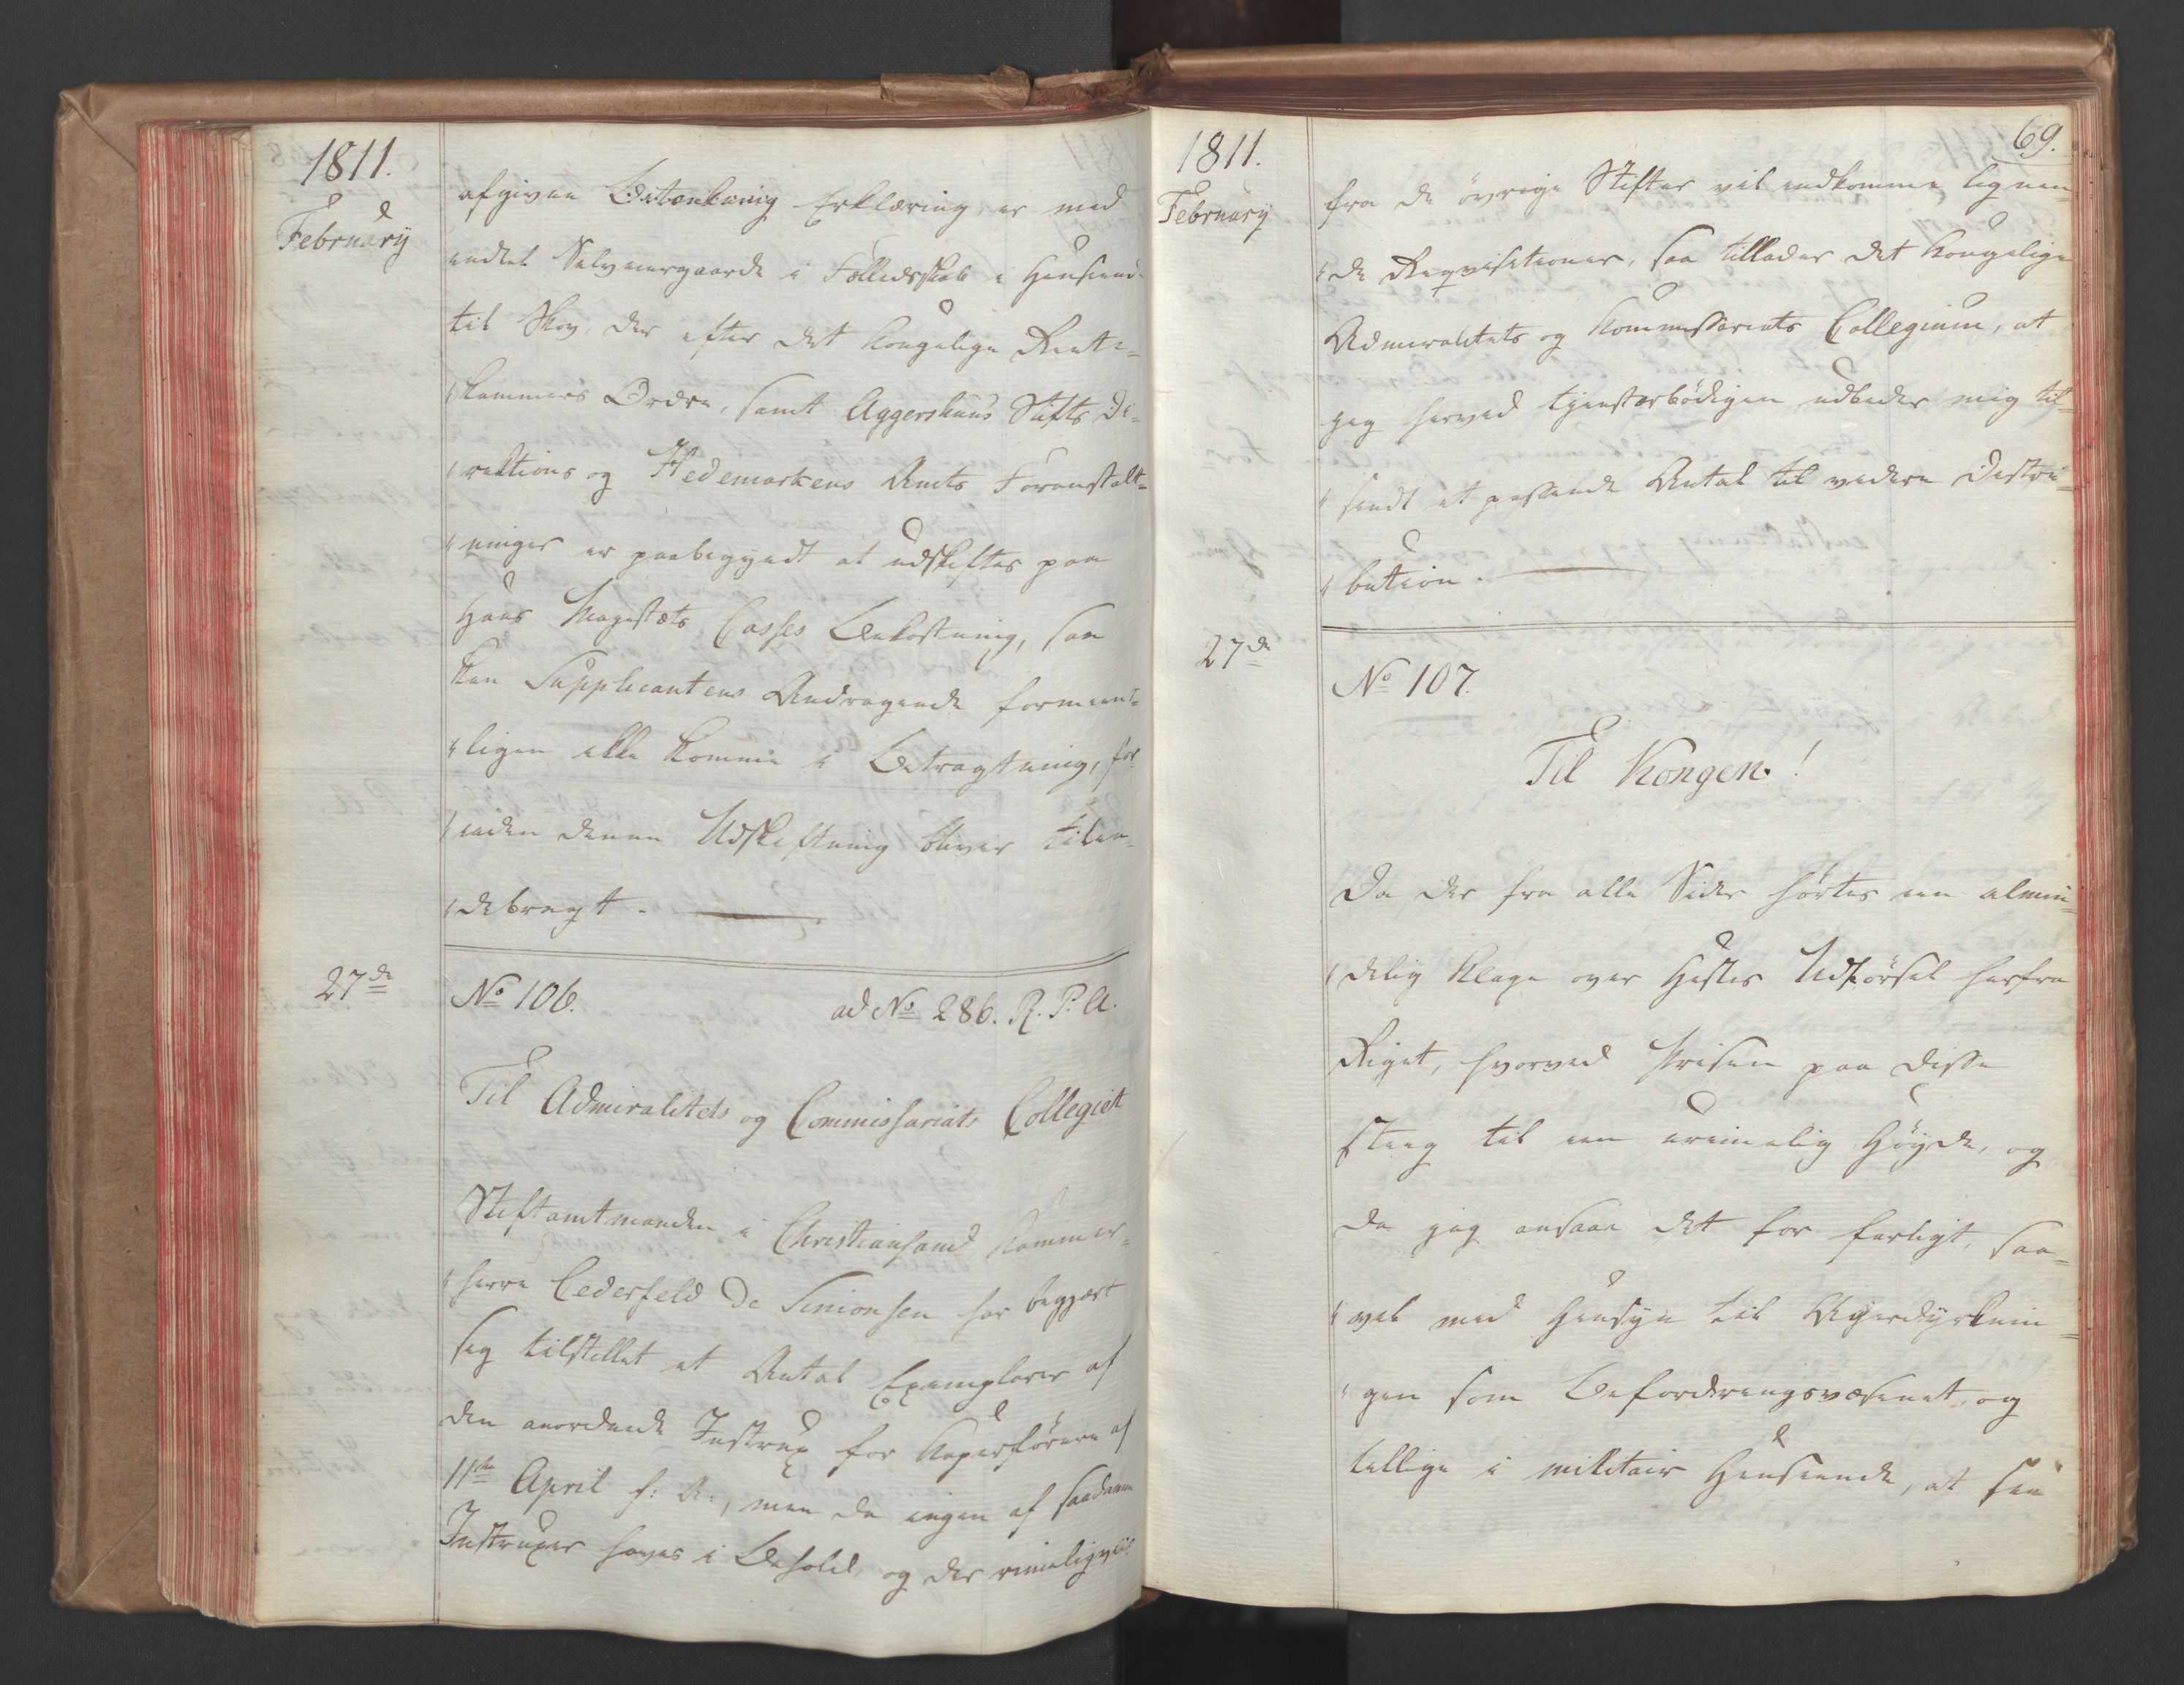 1811.
February
afgivne Betænkning Erklæring, er med
endeel Selveiergaarde i Fælledsskab i Henseende
til Skov, der efter det Kongelige Rente-
kammers Ordre, samt Aggershuus Stifts Di-
rektions og Hedemarkens Amts Foranstalt-
ninger er paabegyndt at udskiftes paa
Hans Majestæts Casses Bekostning, saa
kan Supplicantens Andragende formeent-
ligen ikke komme i Betragtning, for-
inden denne Udskiftning bliver tilen-
debragt.
27de
No 106. ad No 286. R. P. A.
Til Admiralitets og Commissariats Collegiet
Stiftamtmanden i Christiansand Kammer-
herre Cederfeld De Simonsen har begjært
sig tilstillet et Antal Exemplarer af
den anordnede Instrux for Kaperførere af
11te April f: A:, men da ingen af saadanne
Instruxer haves i Behold, og der rimeligviis
1811.
February
69.
fra de övrige Stifter vil indkomme lignen-
de Reqvisitioner, saa tillader det Kongelige
Admiralitets og Kommissariats Collegium, at
jeg herved tjenstærbödigen udbeder mig til-
sendt et passende Antal til videre Distri-
bution.
27de
No 107.
Til Kongen!
Da der fra alle Sider hørtes en almin-
delig Klage over Hestes Udførsel herfra
Riget, hvorved Prisen paa disse
steeg til en urimelig Høyde, og
da jeg ansaae det for farligt, saa-
vel med Hensyn til Agerdyrknin-
gen som Befordringsvæsenet, og
tillige i militair Henseende, at see